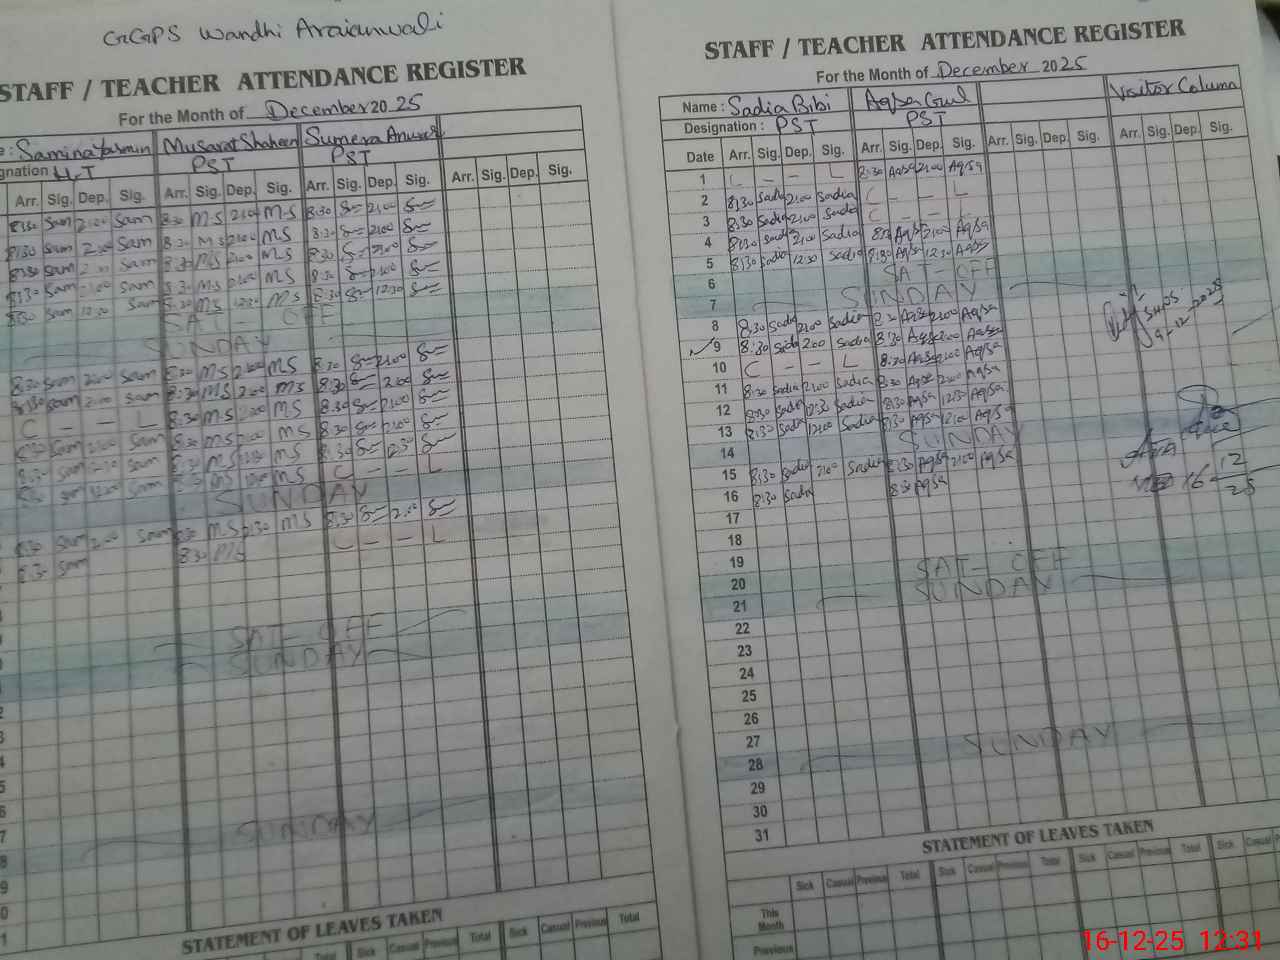 GGPS Wandhi Araianwali
STAFF / TEACHER ATTENDANCE REGISTER
For the Month of December 2025
Samina Yasmin Musarat Shaheen Sumera Anwar
PST PST
Arr. Sig. Dep. Sig. Arr. Sig. Dep. Sig. Arr. Sig. Dep. Sig. Arr. Sig. Dep. Sig.
8:30 Sam 2:00 Sam 8:30 M-S 2:00 M-S 8:30 2:00
8:30 Sam 2:00 Sam 8:30 M S 2:00 MS 8:30 2:00
8:30 Sam Sam 8:30 MS 2:00 MS 8:30 2:00
8:30 Sam 2:00 Sam 8:30 M-S 2:00 MS 8:30 2:00
8:30 Sam 12:30 Sam 8:30 MS 12:30 MS 8:30 12:30
SAT- OFF
SUNDAY
8:30 Sam 2:00 Sam 8:30 MS 2:00 MS 8:30 2:00
8:30 Sam 2:00 Sam 8:30 MS 2:00 MS 8:30 2:00
C - - L 8:30 MS 2:00 MS 8:30 2:00
8:30 Sam 2:00 Sam 8:30 MS 2:00 MS 8:30 2:00
8:30 Sam Sam 8:30 MS MS 8:30 12:30
8:30 Sam 12:00 Sam MS MS C - - L
SUNDAY
8:30 Sam 2:00 Sam MS MS 8:30 2:00
8:30 Sam 8:30 MS C - - L
SAT- OFF
SUNDAY
SUNDAY
STATEMENT OF LEAVES TAKEN
Sick Casual Previous Total Sick Casual Previous Total
STAFF / TEACHER ATTENDANCE REGISTER
For the Month of December 2025
Name : Sadia Bibi Aqsa Gul Visitor Column
Designation : PST PST
Date Arr. Sig. Dep. Sig. Arr. Sig. Dep. Sig. Arr. Sig. Dep. Sig. Arr. Sig. Dep. Sig.
1 C - - L 8:30 Aqsa 2:00 Aqsa
2 8:30 Sadia 2:00 Sadia C - - L
3 8:30 Sadia 2:00 Sadia C - - L
4 8:30 Sadia 2:00 Sadia 8:30 Aqsa 2:00 Aqsa
5 8:30 Sadia 12:30 Sadia 8:30 Aqsa 12:30 Aqsa
6 SAT- OFF
7 SUNDAY
8 8:30 Sadia 2:00 Sadia 8:30 Aqsa 2:00 Aqsa
9 8:30 Sadia 2:00 Sadia 8:30 Aqsa 2:00 Aqsa 9-12-2025
10 C - - L 8:30 Aqsa 2:00 Aqsa
11 8:30 Sadia 2:00 Sadia 8:30 Aqsa 2:00 Aqsa
12 8:30 Sadia 12:30 Sadia 8:30 Aqsa 12:30 Aqsa
13 8:30 Sadia 12:00 Sadia 8:30 Aqsa 12:00 Aqsa
14 SUNDAY
15 8:30 Sadia 2:00 Sadia 8:30 Aqsa 2:00 Aqsa
16 8:30 Sadia 8:30 Aqsa 16 12 25
17
18
19
20 SAT- OFF
21 SUNDAY
22
23
24
25
26
27
28 SUNDAY
29
30
31
STATEMENT OF LEAVES TAKEN
Sick Casual Previous Total Sick Casual Previous Total Sick Casual Previous Total Sick Casual
This Month
Previous
16-12-25 12:31